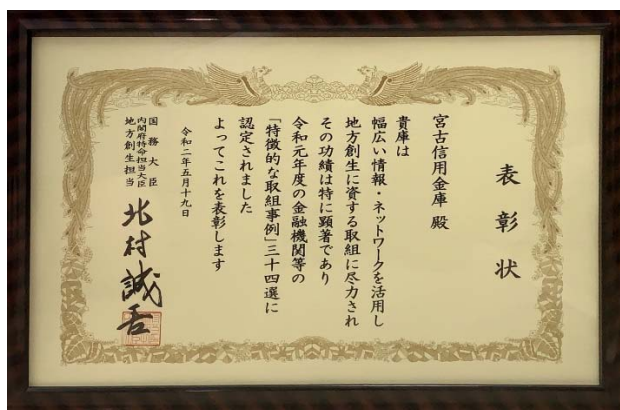 表彰状
宮古信用金庫 殿
貴庫は
幅広い情報・ネットワークを活用し
地方創生に資する取組に尽力され
その功績は特に顕著であり
令和元年度の金融機関等の
「特徴的な取組事例」三十四選に
認定されました
よってこれを表彰します
令和二年五月十九日
国務大臣
内閣府特命担当大臣
地方創生担当
北村誠吾